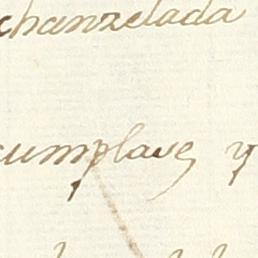 chanzelada
cumplase, y